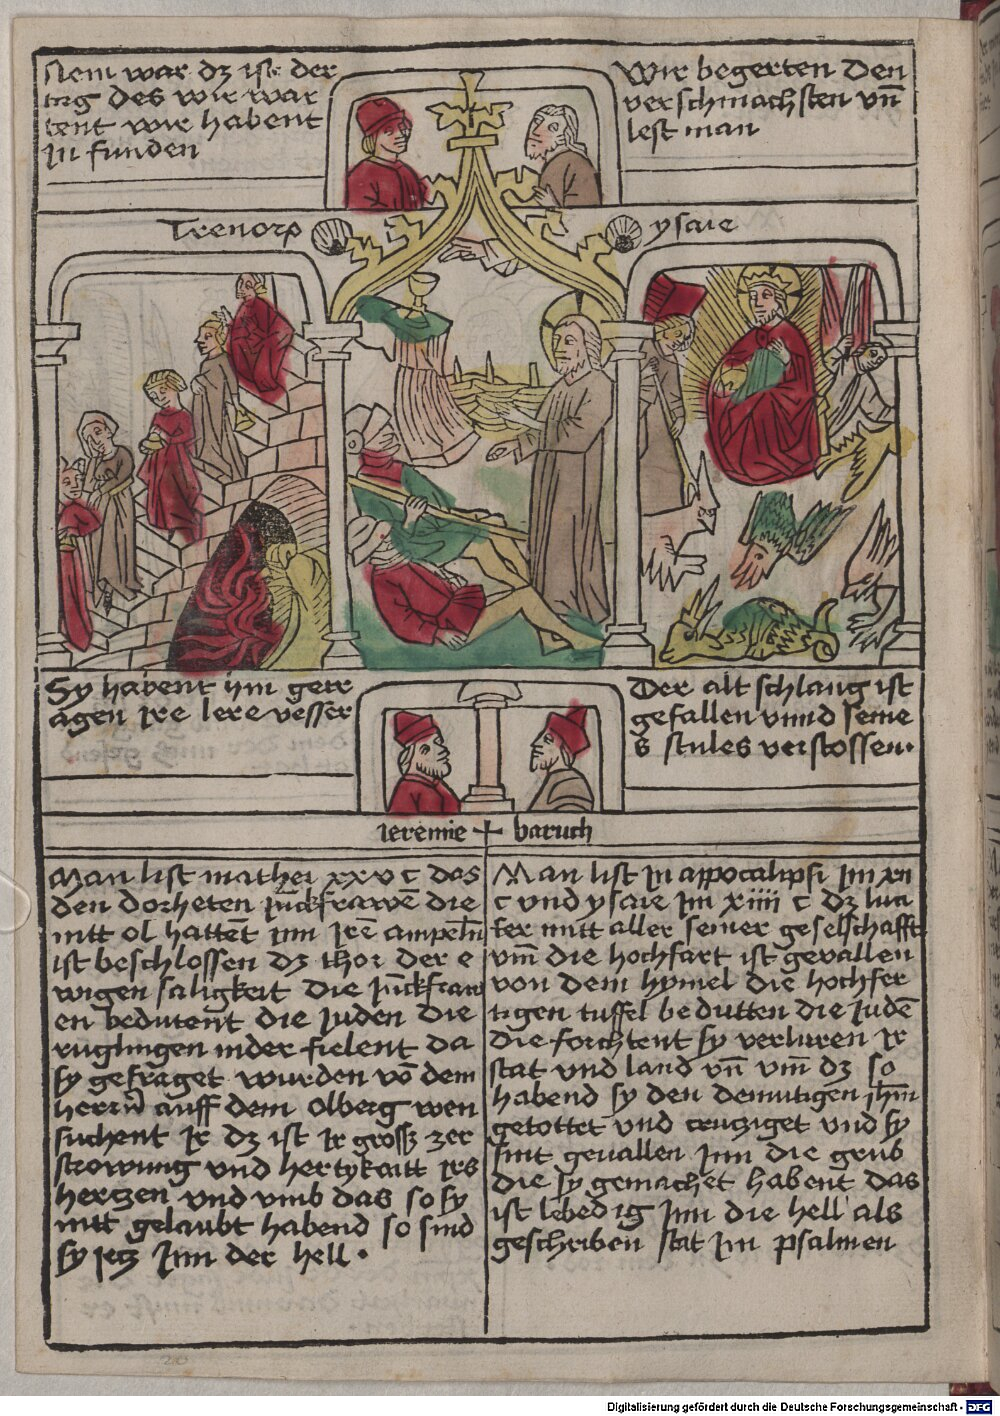 Nem war dz ist der
tag des wir war
tent wir habent
In funden
Wir begerten den
verschmachsten vn̄
lest man
Trenorp
ysaie
Sy habent ym getr
agen ire lere vesser
Der alt schlang ist
gefallen vnnd seine
s stules verstossen·
Ieremie + baruch
Man list mathei xxv c das
den dorheten iūckfrawē die
nitt ol hattēt inn irē ampelln
ist beschlossen dz thor der e
wigen saligkeit die iūckfraw
en bedutent die Juden die
ruglingen nider fielent da
sy gefraget wurden vō dem
herrn̄ auff dem olberg wen
suchent ir dz ist ir gross zer
strowung vnd hertykaitt irs
hertzen vnd vmb das so sy
nitt gelaubt habend so sind
sy jetz Inn der hell·
Man list In appocalipsi Im xii
c vnd ysaie Im xiiii c dz luci
fer mitt aller seiner geselschafft
vm̄ die hochfart ist gevallen
von dem hymel die hochfer
tigen tuffel bedutten die Judē
die forchtent sy verluren ir
stat vnd land vn̄ vm̄ dz so
habend sy den demutigen ihm̄
getottet vnd cruziget vnd sy
sint gevallen Inn die grub
die sy gemachet habent das
ist lebedig Inn die hell als
geschriben stat Im psalmen
Digitalisierung gefördert durch die Deutsche Forschungsgemeinschaft - DFG